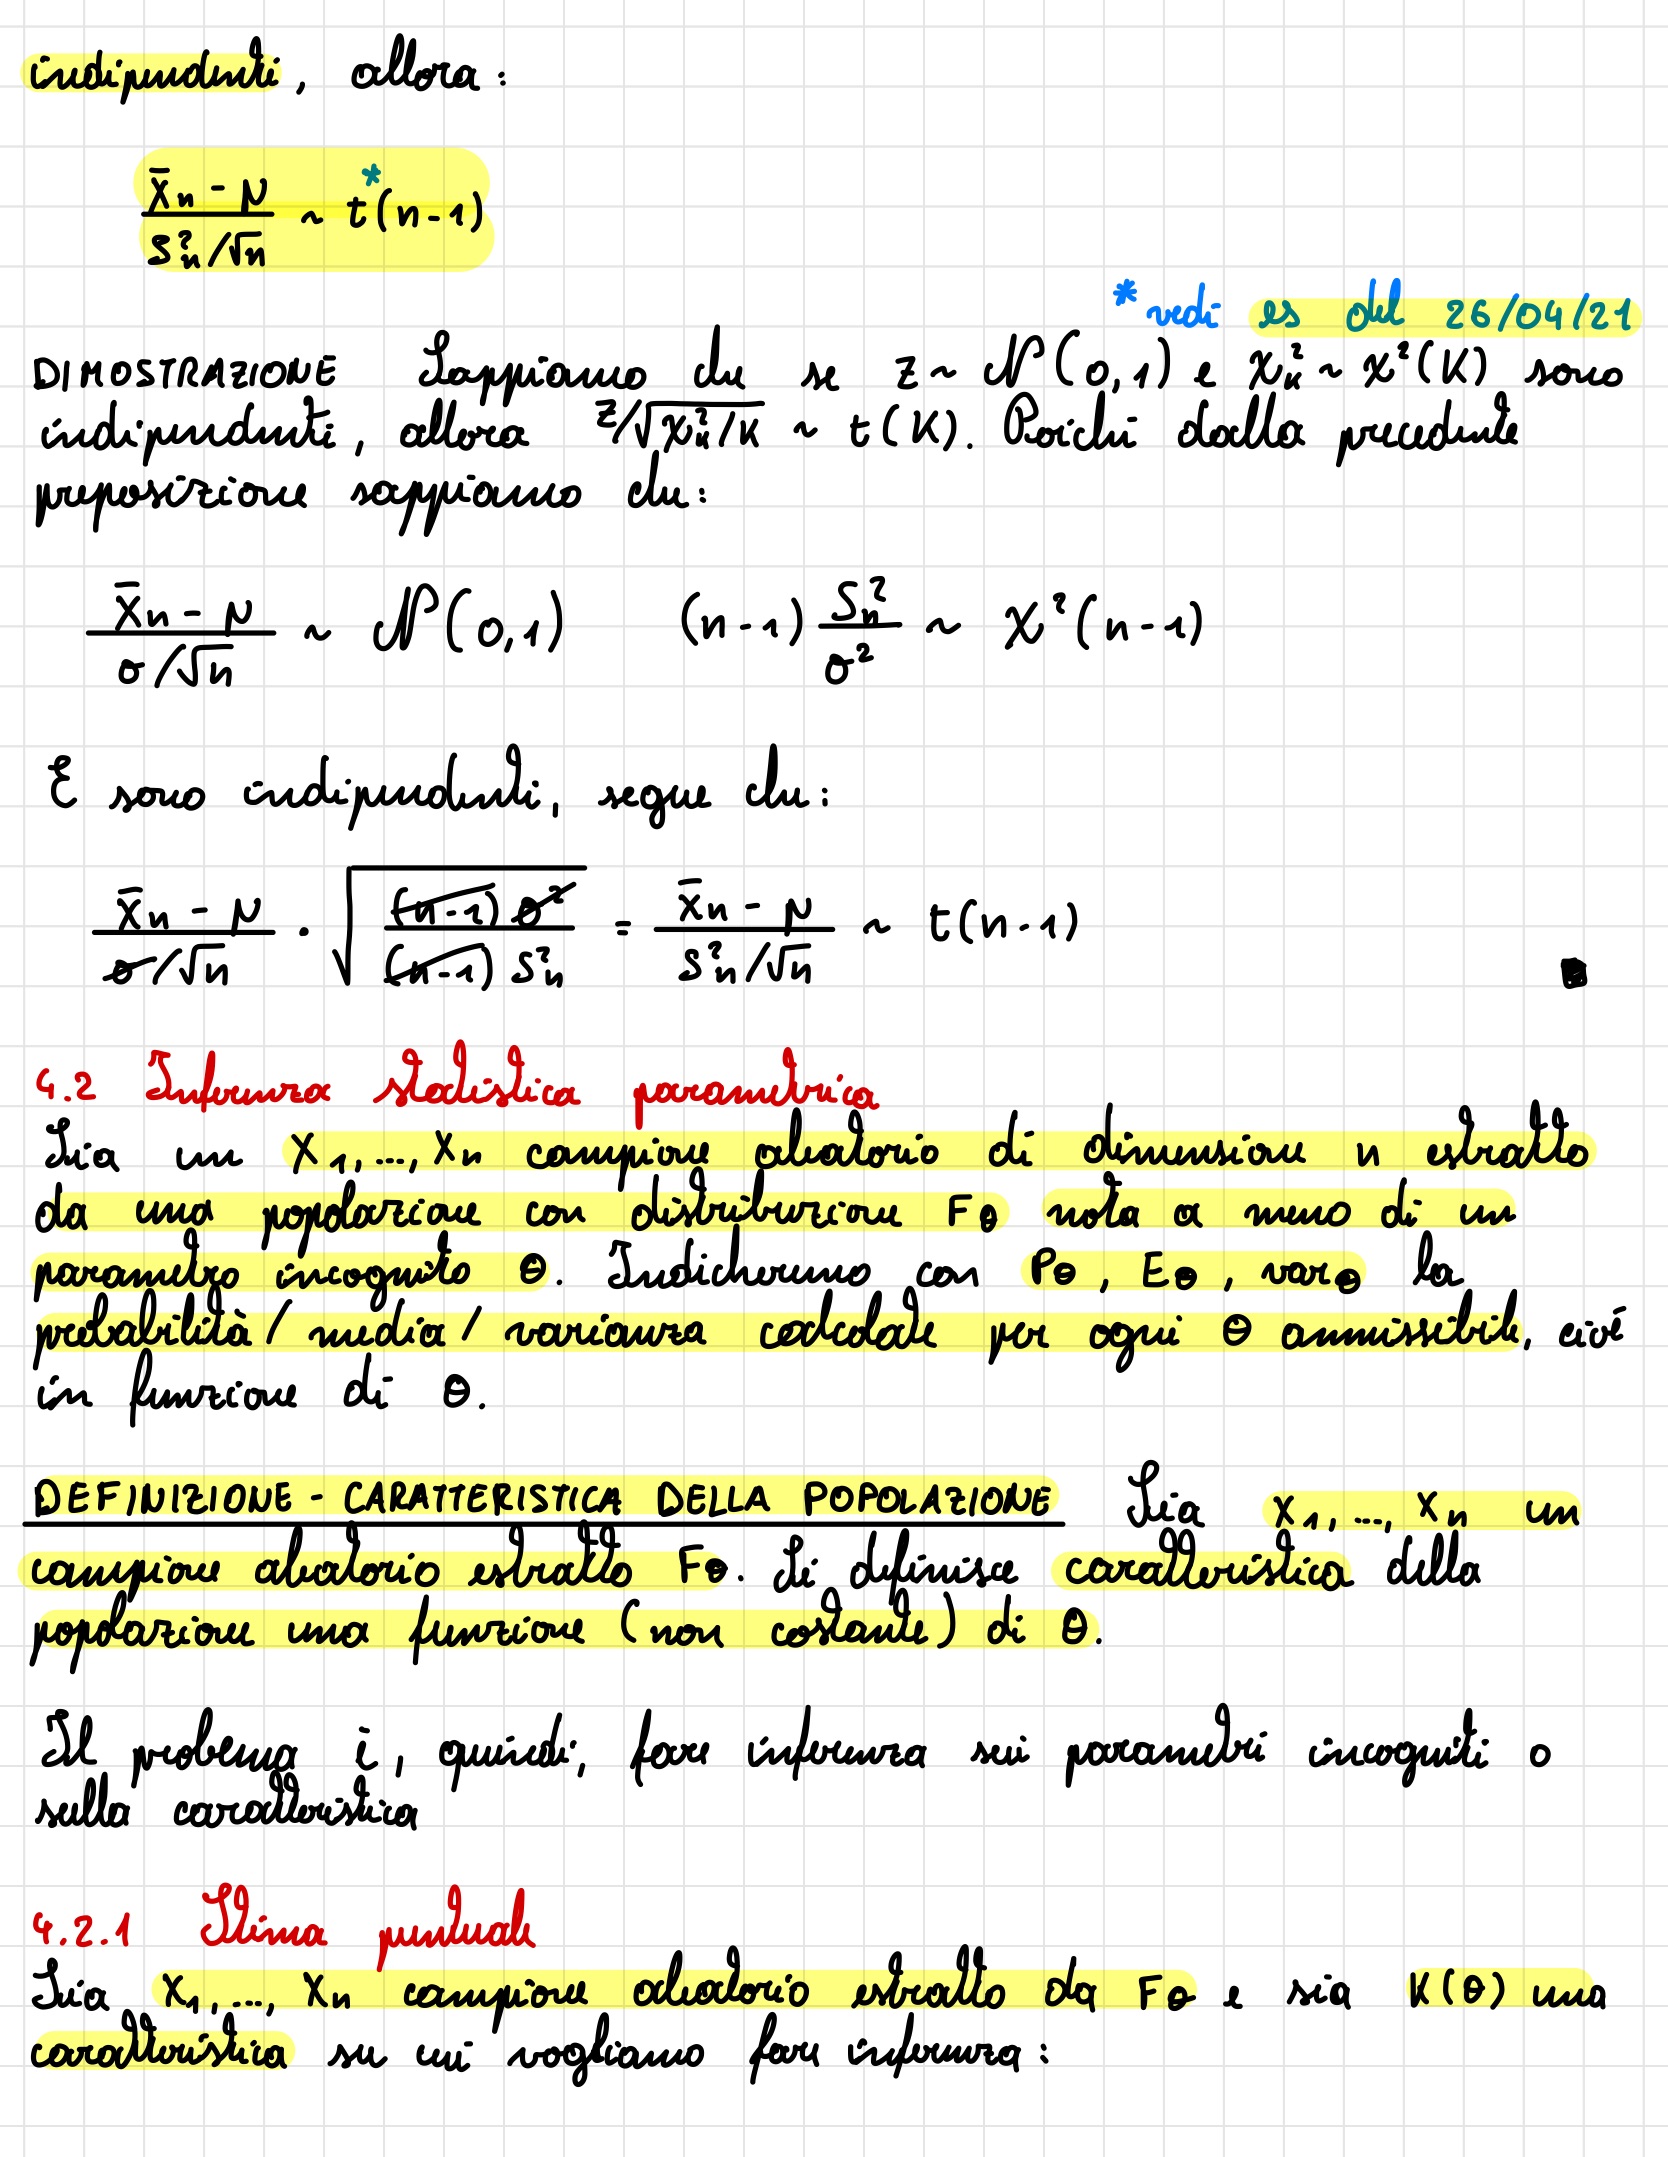 indipendenti, allora:
X̄n - μ / S²n/√n ~ t*(n-1)
* vedi es del 26/04/21
DIMOSTRAZIONE Sappiamo che se Z ~ N(0,1) e χ²k ~ χ²(K) sono
indipendenti, allora Z/√χ²k/K ~ t(K). Poiché dalla precedente
preposizione sappiamo che:
X̄n - μ / σ/√n ~ N(0,1) (n-1) Sn²/σ² ~ χ²(n-1)
E sono indipendenti, segue che:
X̄n - μ / σ/√n · √(n-1)σ²/(n-1)S²n = X̄n - μ / S²n/√n ~ t(n-1)
4.2 Inferenza statistica parametrica
Sia un X1, ..., Xn campione aleatorio di dimensione n estratto
da una popolazione con distribuzione Fθ nota a meno di un
parametro incognito θ. Indicheremo con Pθ, Eθ, varθ la
probabilità / media / varianza calcolate per ogni θ ammissibile, cioè
in funzione di θ.
DEFINIZIONE - CARATTERISTICA DELLA POPOLAZIONE Sia X1, ..., Xn un
campione aleatorio estratto Fθ. Si definisce caratteristica della
popolazione una funzione (non costante) di θ.
Il problema è, quindi, fare inferenza sui parametri incogniti o
sulla caratteristica
4.2.1 Stima puntuale
Sia X1, ..., Xn campione aleatorio estratto da Fθ e sia K(θ) una
caratteristica su cui vogliamo fare inferenza: